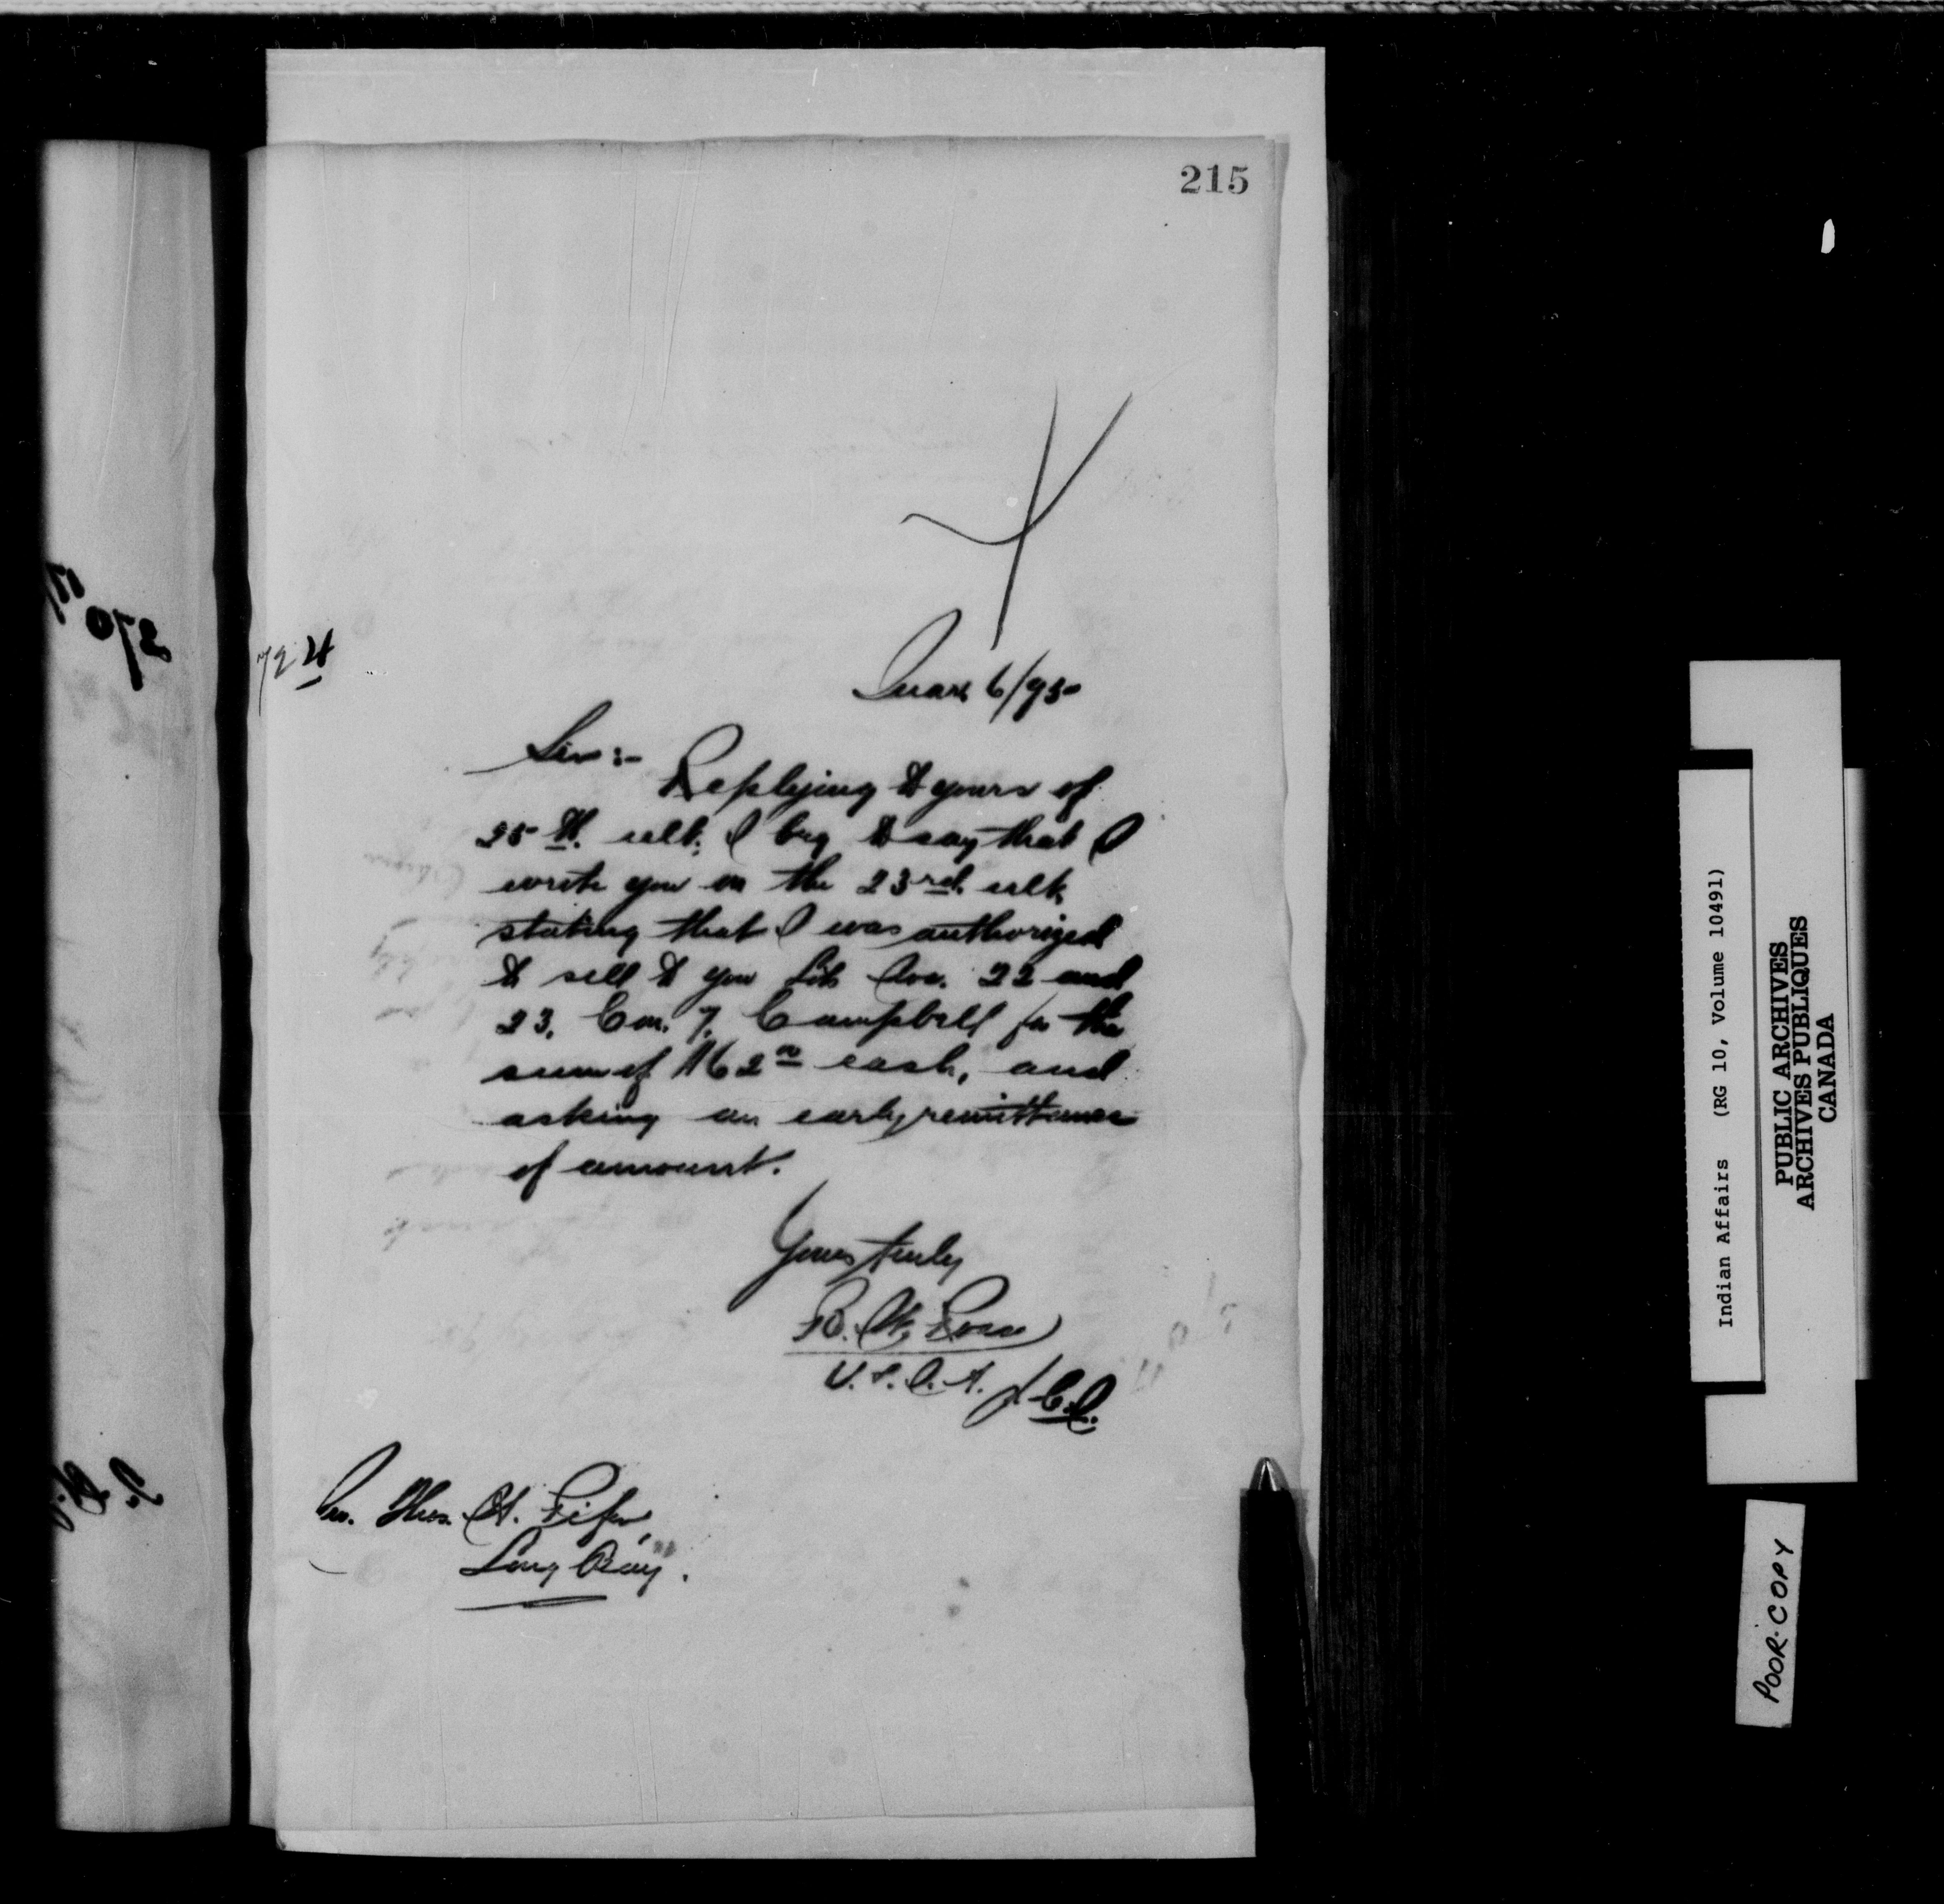 215
72 4
Mar 6/95
Sir:-
Replying to yours of
25th. ult. I beg to say that I
wrote you on the 23rd. ult.
stating that I was authorized
to sell to you Lots Nos. 22 and
23, Con. 7, Campbell for the
sum of 162 00 cash, and
asking an early remittance
of amount.
Yours truly
B. W. Ross
V.S.I.A.
Mr. Thos. H.
Long Bay.
Indian Affairs (RG 10, Volume 10491)
PUBLIC ARCHIVES
ARCHIVES PUBLIQUES
CANADA
POOR-COPY